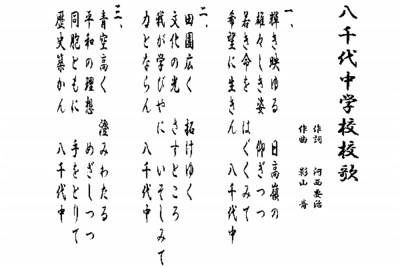 八千代中学校校歌
作詞 河西要治
作曲 影山 晋
一、
輝き映ゆる 日高嶺の
雄々しき姿 仰ぎつつ
若き命を はぐくみて
希望に生きん 八千代中
二、
田園広く 拓けゆく
文化の光 さすところ
我が学びやに いそしみて
力とならん 八千代中
三、
青空高く 澄みわたる
平和の理想 めざしつつ
同胞ともに 手をとりて
歴史築かん 八千代中